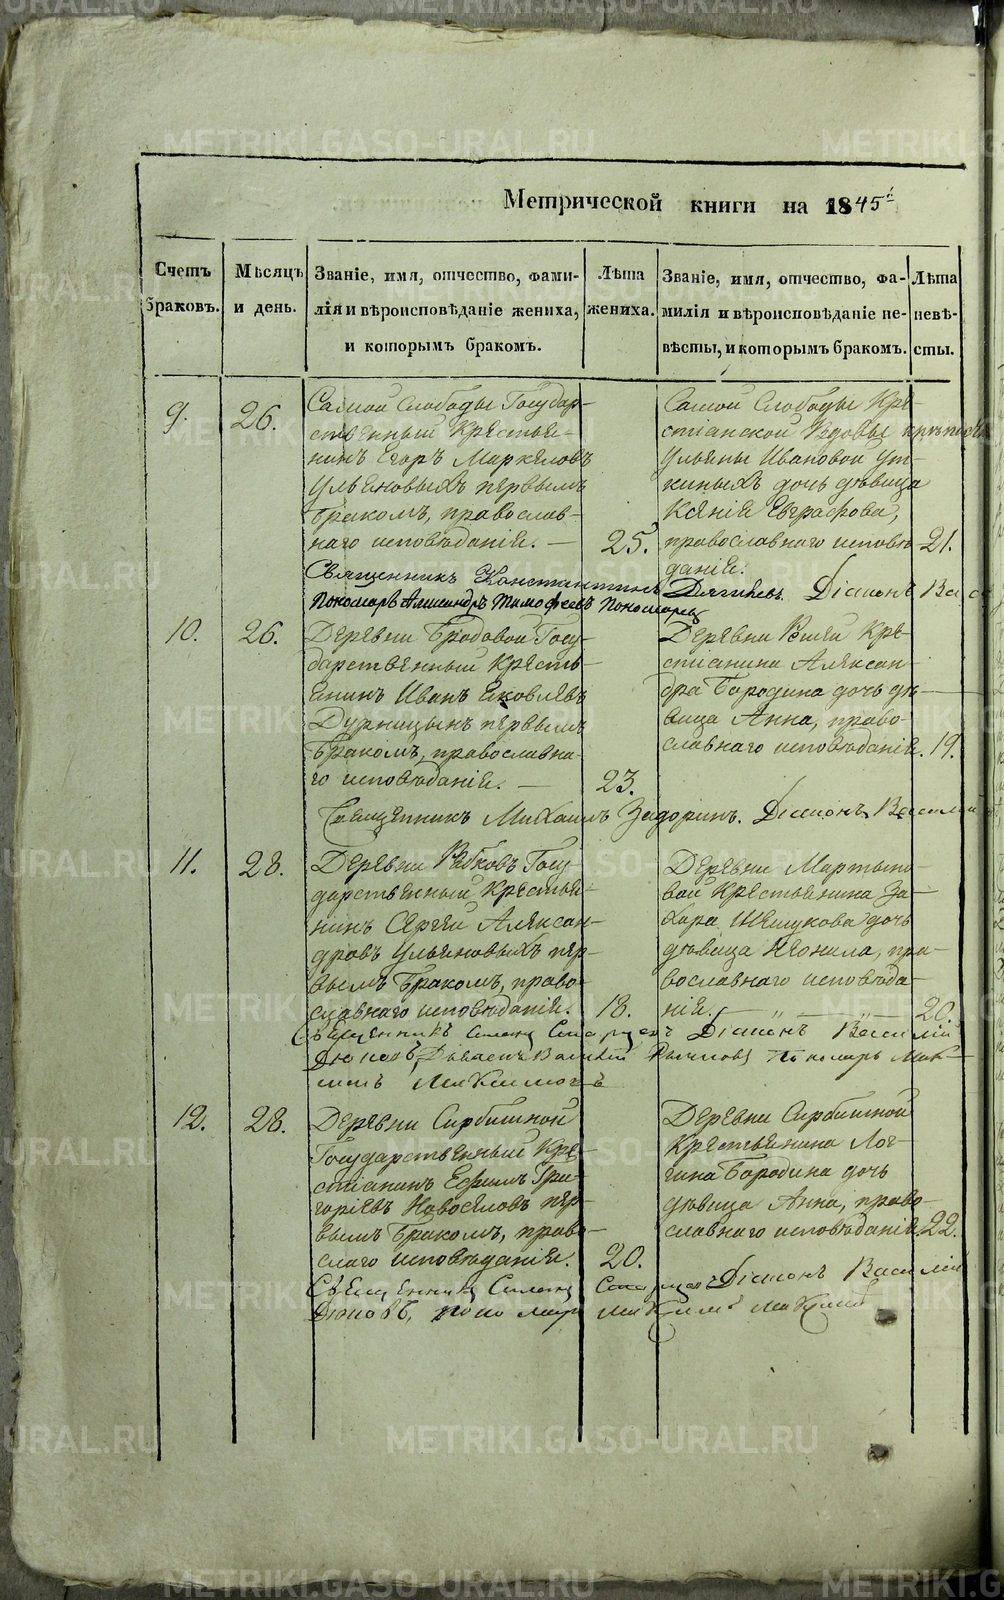 Метрической книги на 1845й
Счетъ браковъ.
Мѣсяцъ и день.
Званіе, имя, отчество, фами-
лія и вѣроисповѣданіе жениха,
и которымъ бракомъ.
Лѣта жениха.
Званіе, имя, отчество, фа-
милія и вѣроисповѣданіе не-
вѣсты, и которымъ бракомъ.
Лѣта невѣ-
сты.
9.
26.
Самой Слободы Государ-
ственный Крестья-
нинъ Егоръ Маркеловъ
Ульяновыхъ первымъ
бракомъ, православ-
наго исповѣданія. —
25.
Самой Слободы Кре-
стіанской Вдовы
Ульяны Ивановой Ут-
киныхъ дочь дѣвица
Ксенія Евграфова,
православнаго исповѣ
данія.
21.
Священникъ Константинъ Діаконъ
Пономарь Александръ Тимофеевъ Пономарь
10.
26.
Деревни Бродовой Госу-
дарственный Кресть-
янинъ Иванъ Яковлевъ
Дурницынъ первымъ
бракомъ, православна-
го исповѣданія. —
23.
Деревни Кре-
стіанина Алексан-
дра Бородина дочь дѣ-
вица Анна, право-
славнаго исповѣданія.
19.
Священникъ Михаилъ Задоринъ. Діаконъ Василій
11.
28.
Деревни Рябковъ Госу-
дарственный Крестья-
нинъ Сергѣй Алексан-
дровъ Ульяновыхъ пер-
вымъ бракомъ, право-
славнаго исповѣданія.
18.
Деревни Мартыно-
вой Крестьянина За-
хара Шешукова дочь
дѣвица Неонила, пра-
вославнаго исповѣда-
нія.
20.
Священникъ Діаконъ Василій
Дюковъ, Пономарь Мак-
симъ Максимовъ
12.
28.
Деревни Сарбишной
Государственный Кре-
стіанинъ Ефимъ Гри-
горіевъ Новоселовъ пер-
вымъ бракомъ, право-
слаго исповѣданія.
20.
Деревни Сарбишной
Крестьянина Лог-
гина Бородина дочь
дѣвица Анна, право-
славнаго исповѣданія.
22.
Священникъ Діаконъ Василій
Дюковъ, пономарь
METRIKI.GASO-URAL.RU